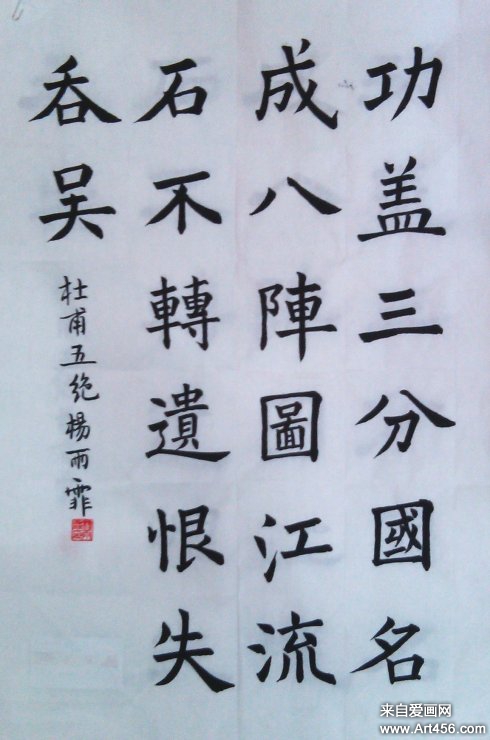 功盖三分國名
成八陣圖江流
石不轉遺恨失
吞吴
杜甫五绝楊雨霏
来自爱画网
www.Art456.com